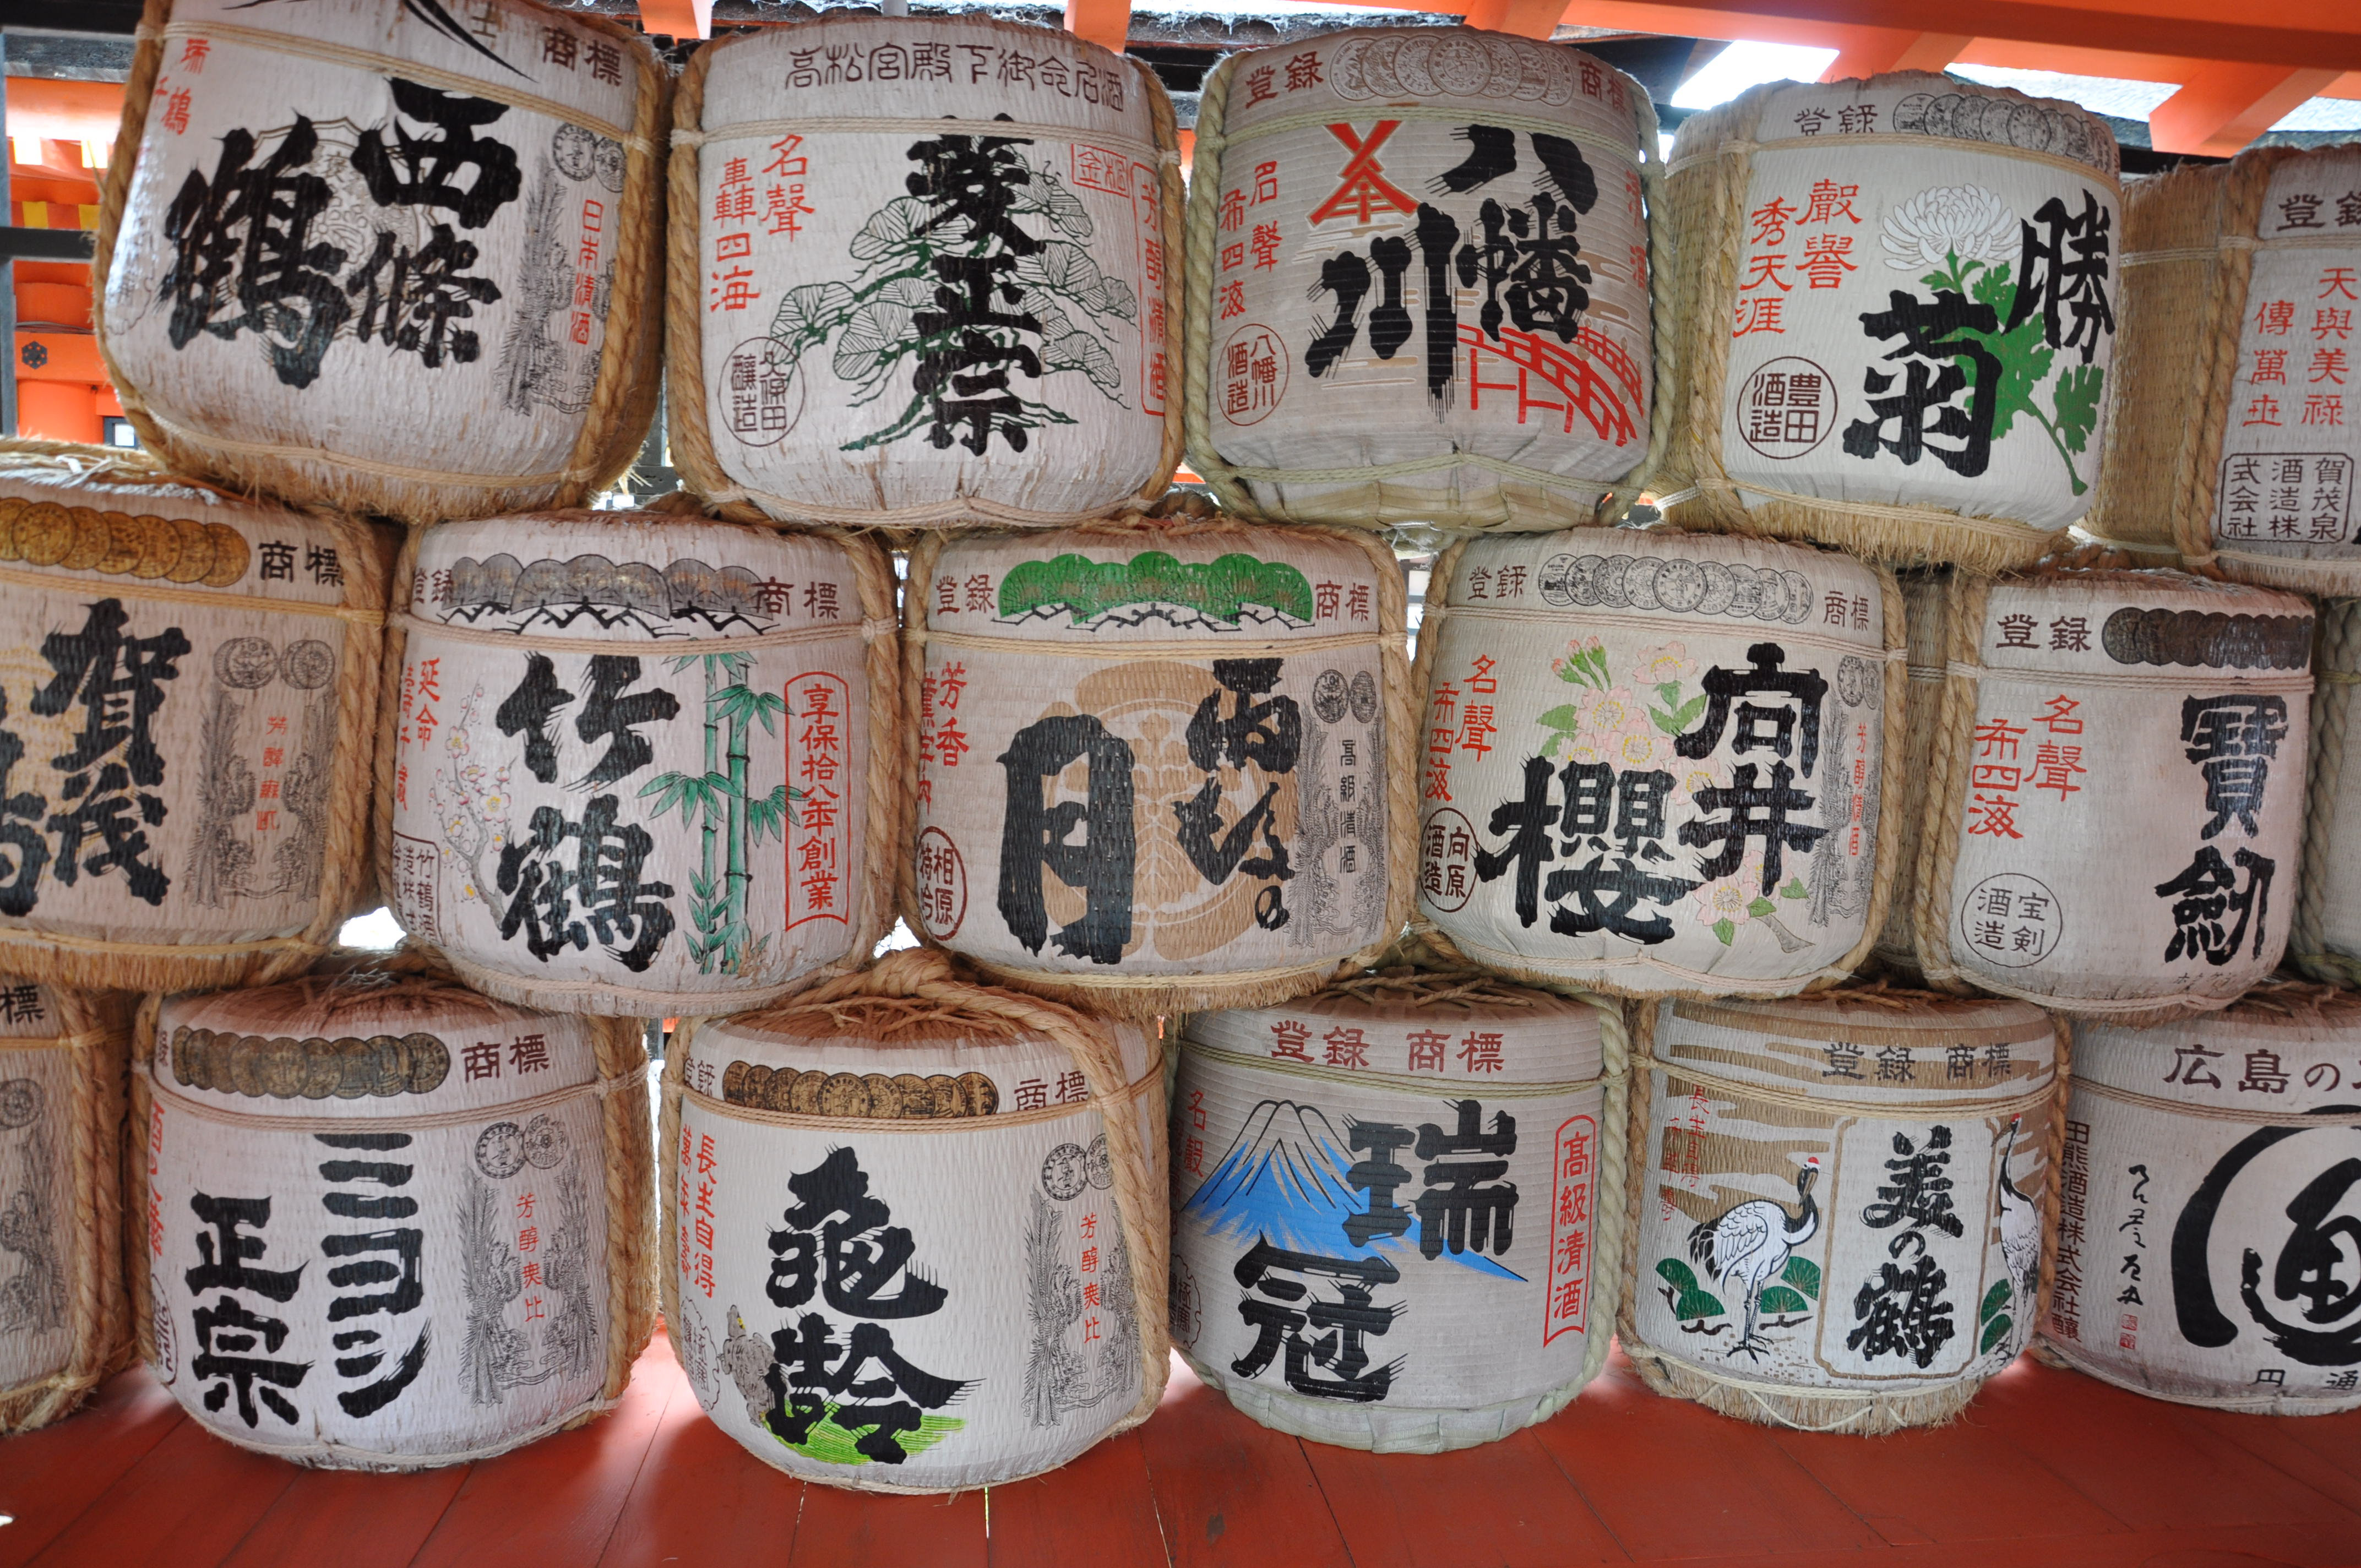 商標
西條
鶴
日本清酒
高松宮殿下御命名酒
名聲
車轉四海
菱正宗
金桐
芳醇清酒
久保田
醸造
登録
商標
名聲
布四海
八幡
川
八幡川
酒造
登録
勝
菊
聲譽
秀天涯
豊田
酒造
登録
天與美禄
傳萬世
賀茂泉
酒造株
式会社
商標
賀茂
鶴
登録
商標
延命
竹鶴
享保拾八年創業
竹鶴酒
登録
商標
芳香
雨後の
月
高級清酒
相原
特吟
登録
商標
名聲
布四海
向井
櫻
芳醇清酒
向原
酒造
登録
名聲
布四海
寶劍
宝剣
酒造
標
商標
三ヨシ
正宗
芳醇無比
登録
商標
長生自得
亀齢
芳醇無比
登録 商標
名聲
瑞
冠
高級清酒
登録 商標
美の鶴
広島の
田熊酒造株式会社醸
通
円 通